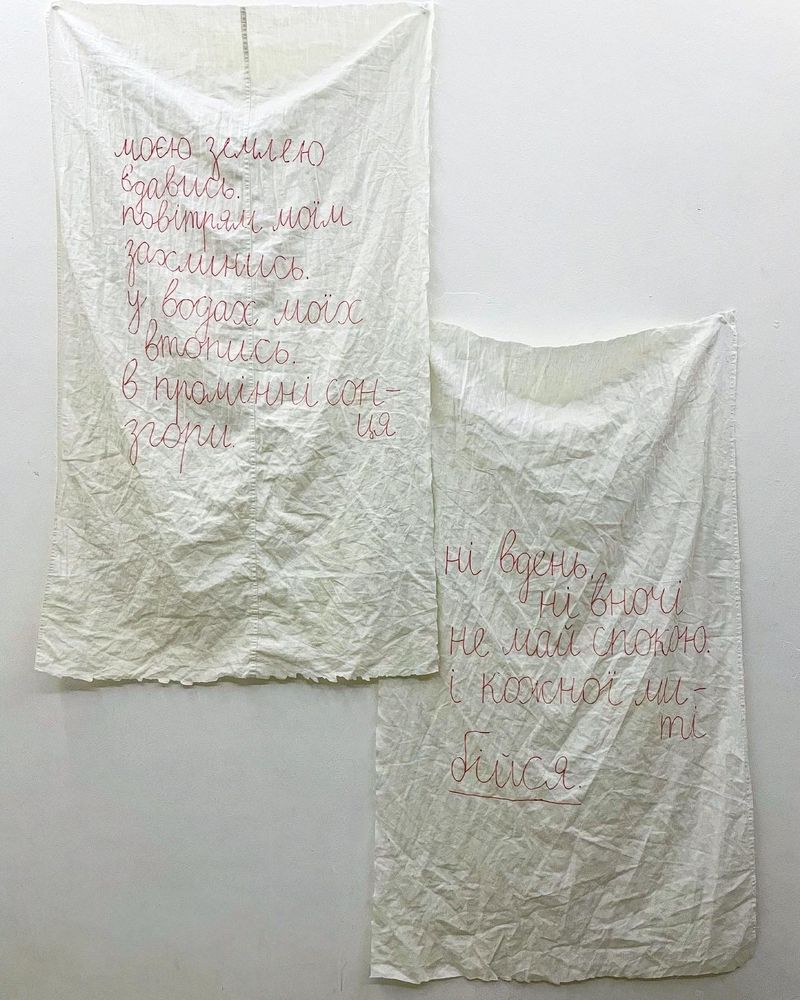 моєю землею
вдавись.
повітрям моїм
захлинись.
у водах моїх
втопись.
в промінні сон-
згори. ця
ні вдень,
ні вночі
не май спокою.
і кожної ми-
ті
бійся.